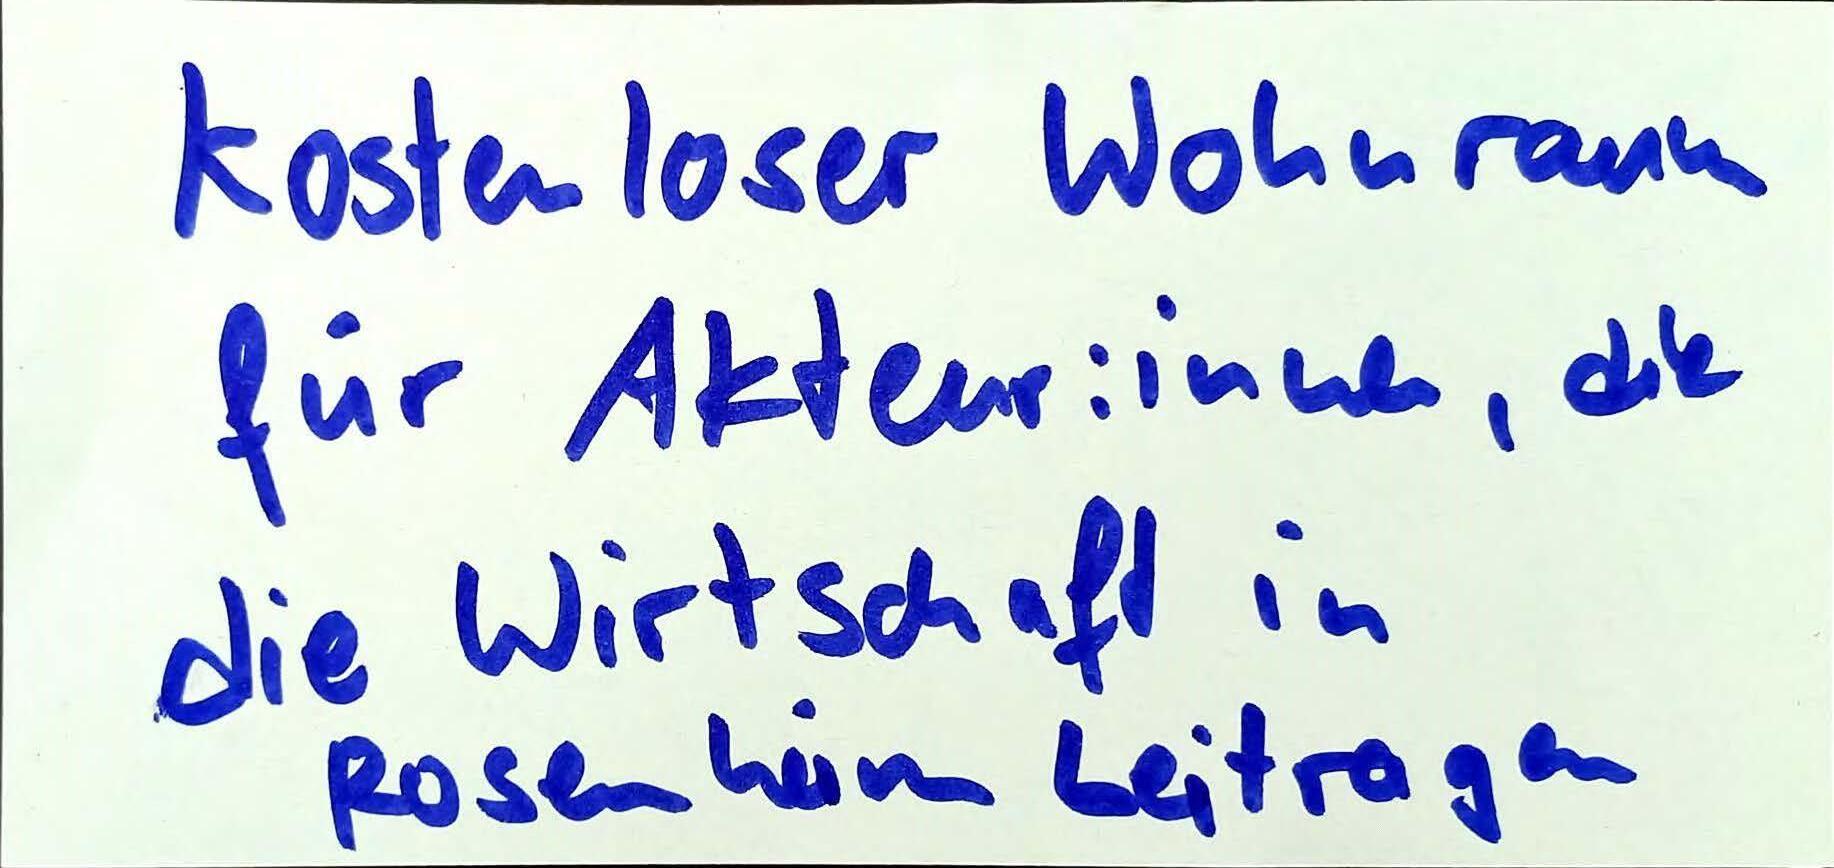 kostenloser Wohnraum
für Akteur:innen, die
die Wirtschaft in
Rosenheim beitragen